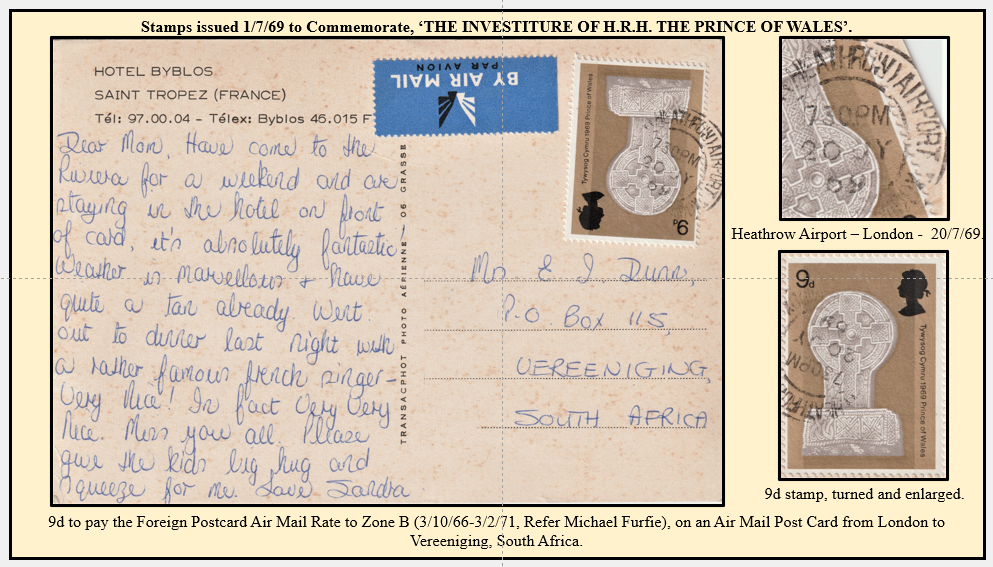 Stamps issued 1/7/69 to Commemorate, ‘THE INVESTITURE OF H.R.H. THE PRINCE OF WALES’.
HOTEL BYBLOS
SAINT TROPEZ (FRANCE)
Tél: 97.00.04 - Télex: Byblos 45.015 F
BY AIR MAIL
PAR AVION
Dear Mom, Have come to the
Riviera for a weekend and are
staying in the hotel on front
of card, it's absolutely fantastic!
Weather is marvellous + have
quite a tan already. Went
out to dinner last night with
a rather famous french singer -
Very Nice! In fact Very Very
Nice. Miss you all. Please
give the kids big hug and
squeeze for me. Love Sandra
TRANSACPHOT PHOTO AÉRIENNE 06 GRASSE
Tywysog Cymru 1969 Prince of Wales
9d
HEATHROW AIRPORT
730PM
20 JY
69
Dunn,
P.O Box 115,
VEREENIGING,
SOUTH AFRICA
HEATHROW AIRPORT
730PM
20 JY
69
Heathrow Airport – London - 20/7/69.
9d
Tywysog Cymru 1969 Prince of Wales
HEATHR
730PM
20 JY
69
9d stamp, turned and enlarged.
9d to pay the Foreign Postcard Air Mail Rate to Zone B (3/10/66-3/2/71, Refer Michael Furfie), on an Air Mail Post Card from London to
Vereeniging, South Africa.